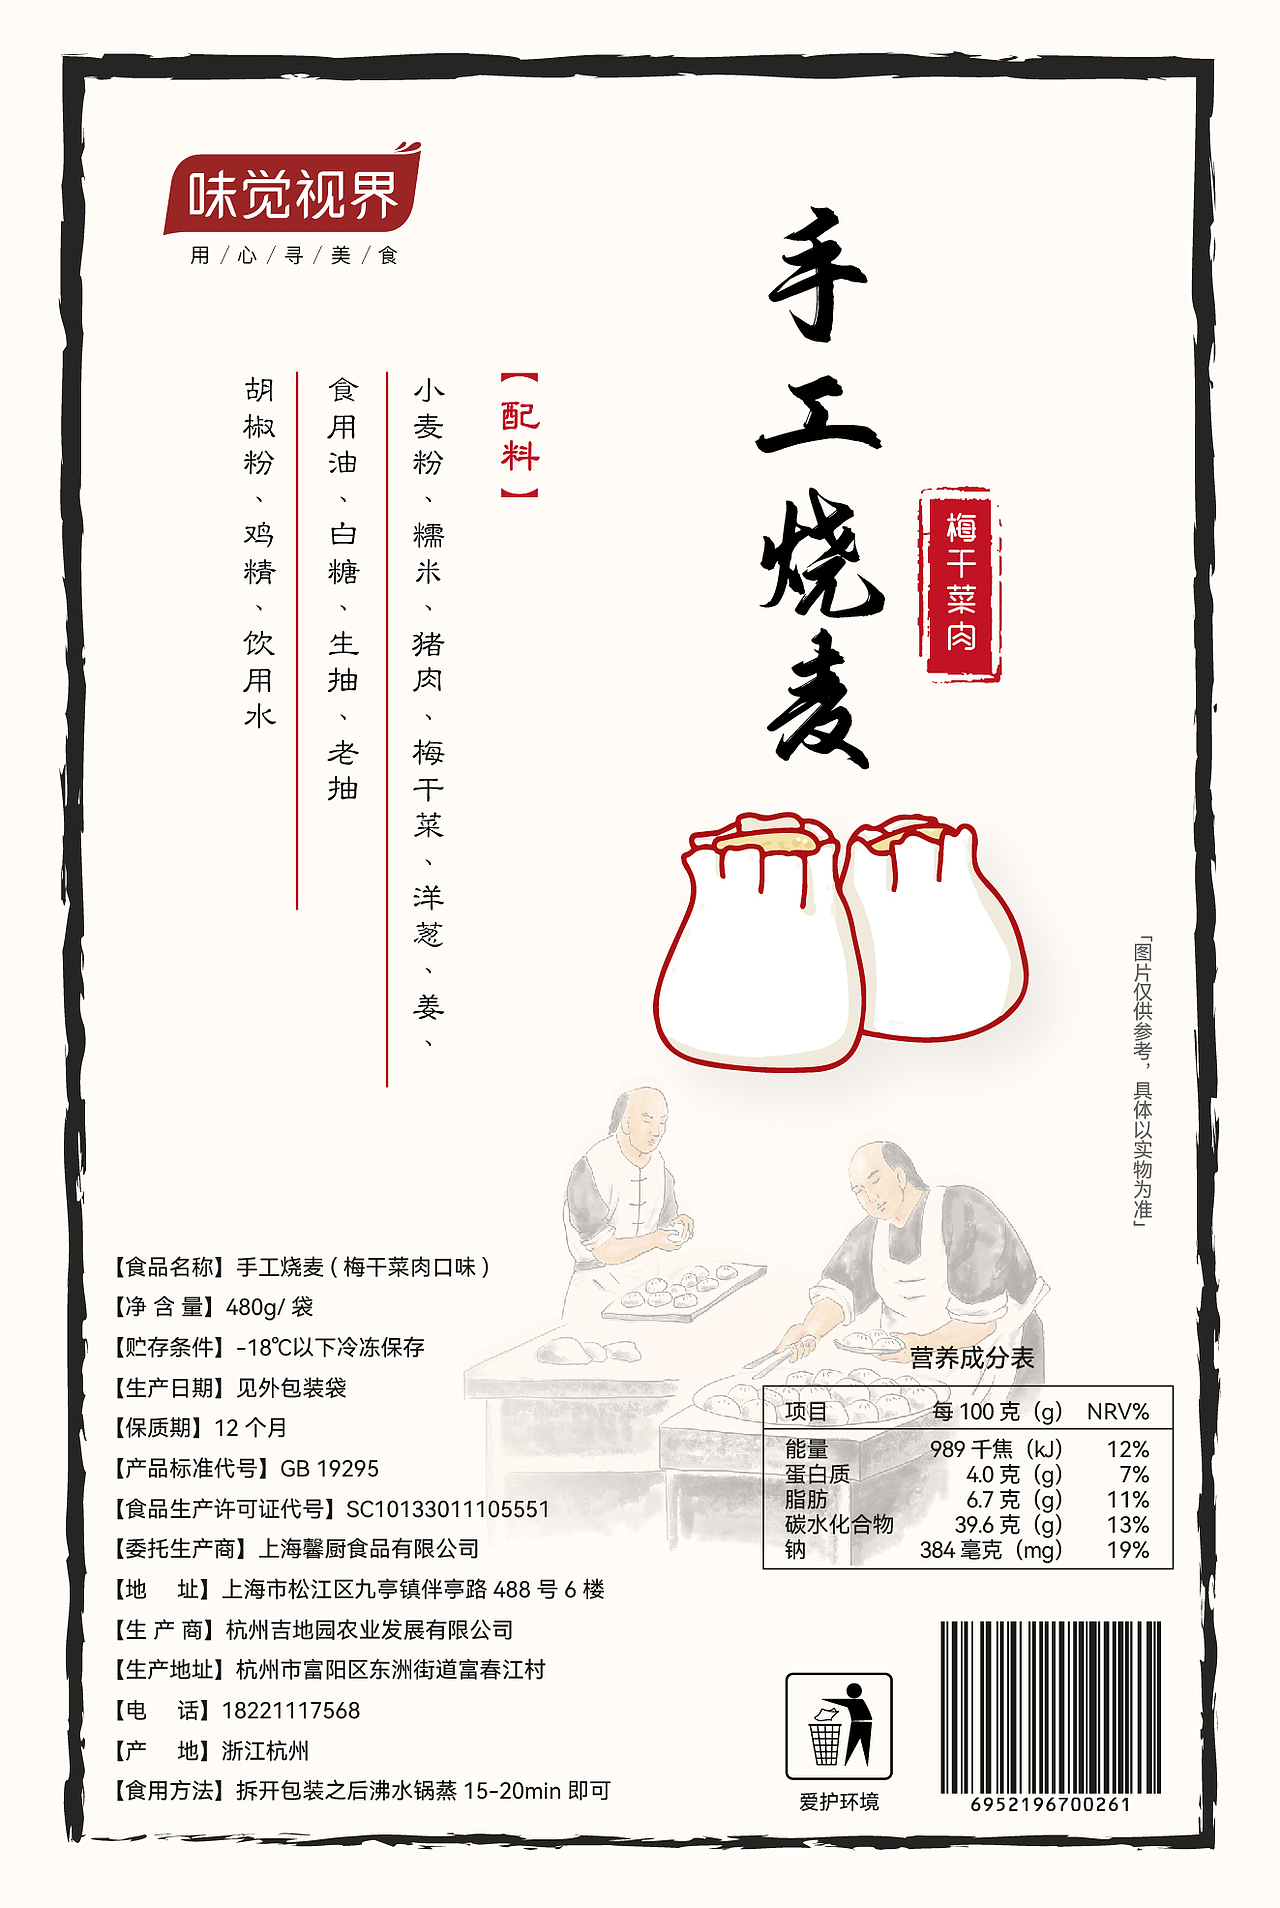 味觉视界
用/心/寻/美/食
手工烧麦
梅干菜肉
【配料】
小麦粉、糯米、猪肉、梅干菜、洋葱、姜、
食用油、白糖、生抽、老抽
胡椒粉、鸡精、饮用水
「图片仅供参考，具体以实物为准」
【食品名称】手工烧麦(梅干菜肉口味)
【净 含 量】480g/ 袋
【贮存条件】-18℃以下冷冻保存
【生产日期】见外包装袋
【保质期】12 个月
【产品标准代号】GB 19295
【食品生产许可证代号】SC10133011105551
【委托生产商】上海馨厨食品有限公司
【地 址】上海市松江区九亭镇伴亭路 488 号 6 楼
【生 产 商】杭州吉地园农业发展有限公司
【生产地址】杭州市富阳区东洲街道富春江村
【电 话】18221117568
【产 地】浙江杭州
【食用方法】拆开包装之后沸水锅蒸 15-20min 即可
营养成分表
项目 每 100 克（g） NRV%
能量 989 千焦（kJ） 12%
蛋白质 4.0 克（g） 7%
脂肪 6.7 克（g） 11%
碳水化合物 39.6 克（g） 13%
钠 384 毫克（mg） 19%
爱护环境
6952196700261